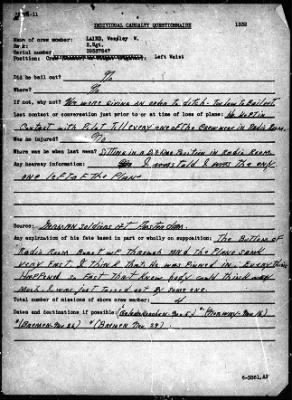 INDIVIDUAL CASUALTY QUESTIONNAIRE
Name of crew member: LAIRD, Wensley W.
Rank: S.Sgt.
Serial number
Position: Left Waist
Did he bail out? No
Where? No
If not, why not? We were giving an order to ditch - Too low to Bail out
Last contact or conversation just prior to or at time of loss of plane: He kept in
Contact with Pilot till every one of the Crew were in Radio Room
Was he injured? No
Where was he when last seen? Sitting in a Ditching Position in Radio Room
Any hearsay information: I was told I was the only
one left of the Plane
Source: German soldiers at Amsterdam
Any explanation of his fate based in part or wholly on supposition: The Bottom of
Radio Room Burst up Through and the Plane sank
very fast. I think that He was Pinned in. Everything
Happened so fast that knew body could think very
Much. I was just tossed out By some one.
Total number of missions of above crew member: 4
Dates and destinations, if possible (Gelsenkirchen-Nov. 5) "(Norway-Nov. 16)
"(Bremen-Nov. 26) "(Bremen Nov. 29).
6-3861,AF